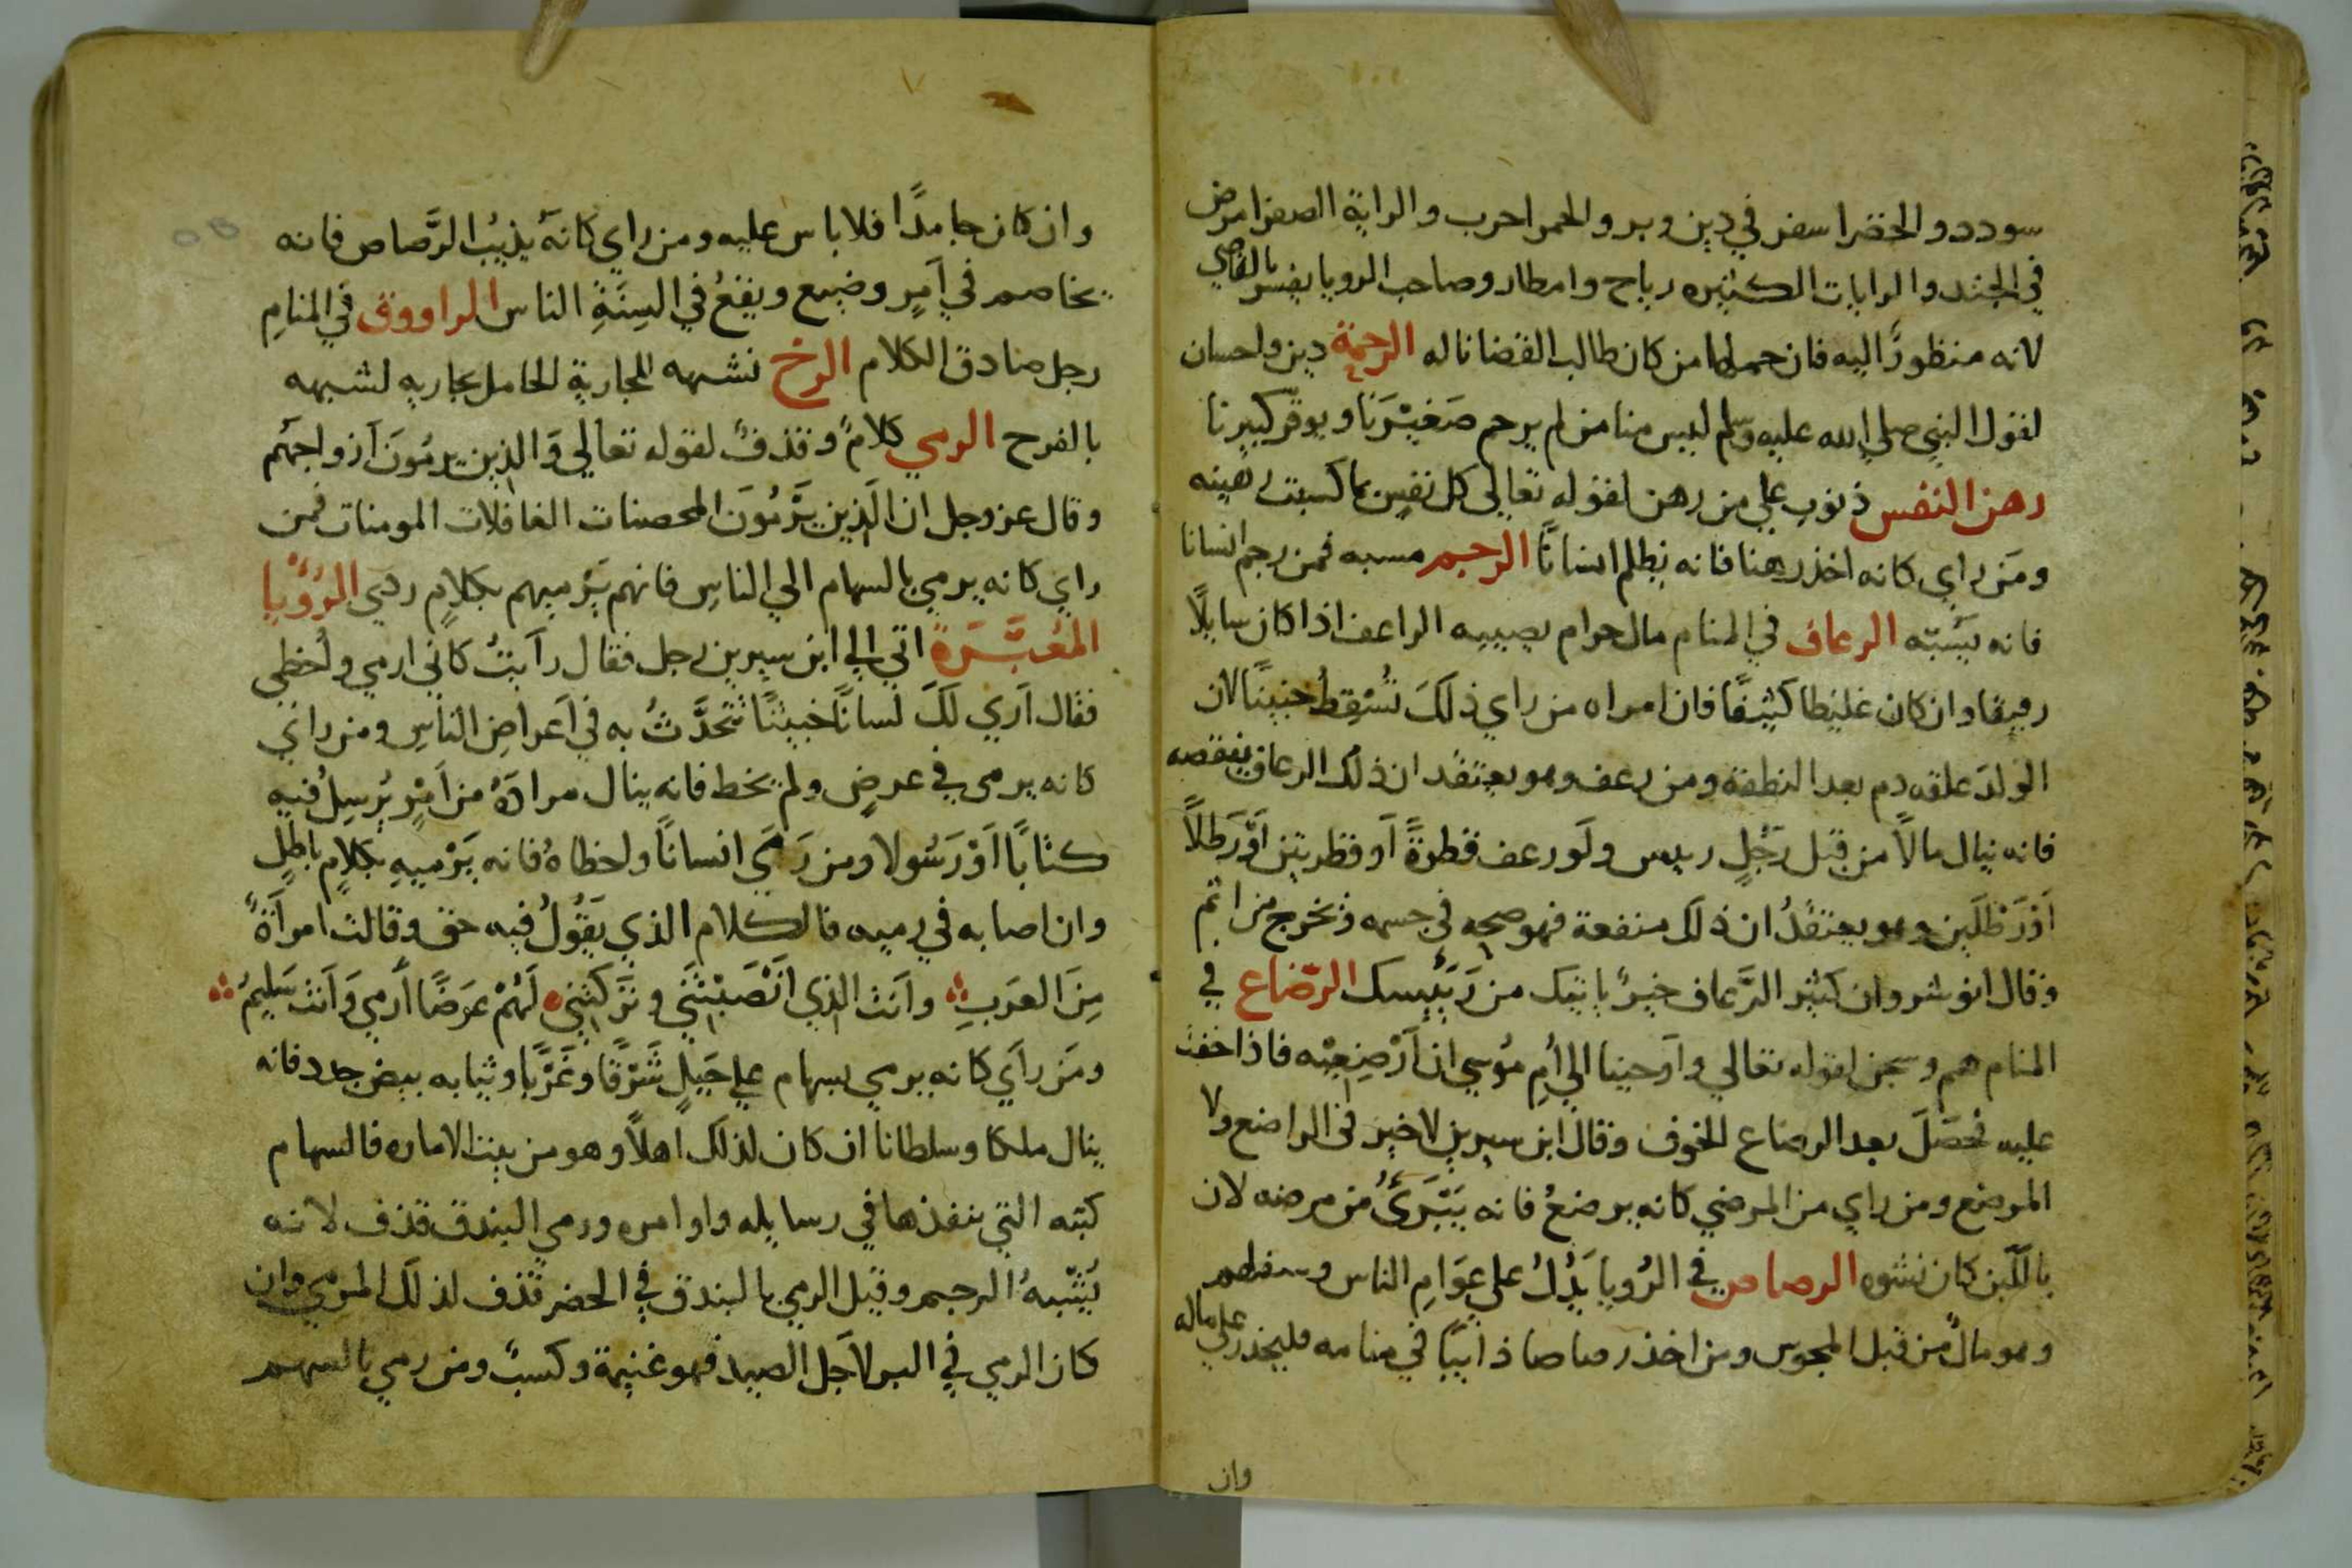 سودد والخضرا سفر في دين وبر والحمرا حرب والراية الصفرا مرض
في الجند والرايات الكثيره رياح وامطار وصاحب الرويا يفسر بالقاضي
لانه منظورًا اليه فان حملها من كان طالب القضا ناله الرحمة دين واحسان
لقول النبي صلي الله عليه وسلم ليس منا من لم يرحم صَغيْرَنَا ويوقّر كبيرنا
رهن النفس ذنوب علي من رهن لقوله تعالي كل نفسٍ بما كسبت رهينه
ومَن راي كانه اخذ رهنا فانه يظلم انسانًا الرجم مسبه فمن رجم انسانا
فانه يَسُبّه الرعاف في المنام مال حرام يصيبه الراعف اذا كان سايلًا
رقيقا وان كان غليظا كثيفًا فان امراه من راي ذلكَ تُسْقِطُ جنينًا لان
الولدَ علقه دم بعد النطفة ومن رعف وهو يعتقد ان ذلك الرعاف ينقصه
فانه ينال مالًا من قبل رَجُلٍ رييس ولَو رعف قطرةً اَو قطرتين اَوْ رَطلًا
اَوْ رَطْلَين وهو يعتقدُ ان ذلك منفعة فهو صحه في جسمه وتخرج من اثم
وقال انوشروان كثير الرَّعاف خيرٌ ياتيك من رَئِيسك الرّضاع في
المنام هم وسجن لقوله تعالي واَوحينا الي اُمِ مُوسي ان اَرْضِعِيْه فاذا خفت
عليه فحصَلَ بعد الرضاع الخوف وقال ابن سيرين لا خير في الراضع ولا
المرضع ومن راي من المرضي كانه يرضعُ فانه يَبْرَئُ من مرضه لان
باللّبن كان نشوه الرصاص في الرُويا يَدُلُ علي عوَامِ الناس وسفلهم
وهو مالٌ من قبل المجوس ومن اخذ رصاصا ذايبًا في منامه فليحذر علي ماله
وان
وان كان جامدًا فلا باس عليه ومن راي كانهَ يذيبُ الرَّصاص فانه
يخاصم في اَمرٍ وضيع ويقعُ في السِنَةِ الناس الراووق في المنامِ
رجل صادق الكلام الرخ نشبهه للجارية الحامل بجاريه لشبهه
بالفرح الرمي كلامٌ وقذفٌ لقوله تعالي وَالذين يرمُونَ اَزواجهُم
وقال عز وجل ان الَذِين يَرْمُونَ المحصنات الغافلات المومنات فمن
راي كانه يرمي بالسهام الي الناسِ فانهم يَرْميهم بكلامٍ ردي الرُؤْيا
المُعَبَّرَةَ اتي الي ابن سيرين رجل فقال راَيتُ كاَني ارمي واُخطي
فقال اَري لَكَ لسانًا خبيثًا تتحدَّثُ به في اَعراضِ الناسِ ومن راَي
كانه يرمي في عرضٍ ولم يخط فانه ينال مرادَهُ من اَمْرٍ يُرسِلُ فيه
كتابًا اَوْ رَسُولا ومن رَمَي انسانًا واخطاهُ فانه يَرْميهِ بكلامٍ باطلٍ
وان اصابه في رميه فالكلام الذي يَقُولُ فيه حق وقالت امرأةٌ
مِنَ العرَبِ وانَت الذي انْصَبْتَنَي وتَرَكتني لَهُمْ عرَضًا اُرمي وَاَنت سَليمُ
ومَن راَي كانه يرمي بسهام علي جَبَلٍ شَرْقًا وغَرْبًا وثيابه بيض جدد فانه
ينال ملكا وسلطانا ان كان لذلك اَهلًا وهو من بيت الاماره فالسهام
كتبه التي ينفذها في رسايله واوامره ورمي البندق قذف لانه
يُشْبهُ الرجم وقيل الرمي بالبندق في الحضر قذف لذلك المرمي وان
كان الرمي في البر لاَجل الصيد فهو غنيمة وكسبٌ ومن رمي بالسهم